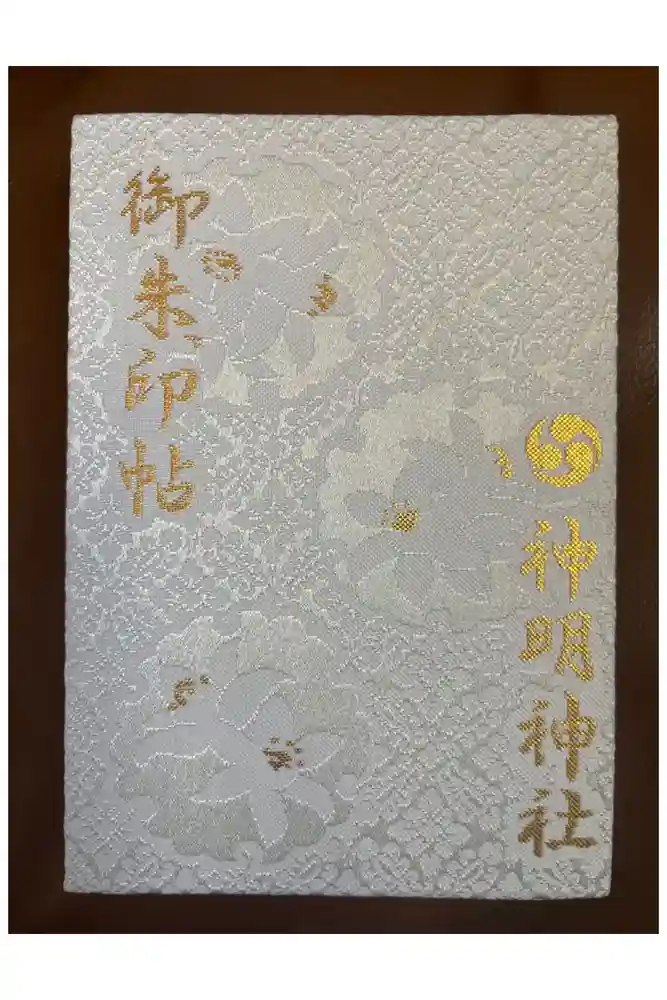 御朱印帖
神明神社